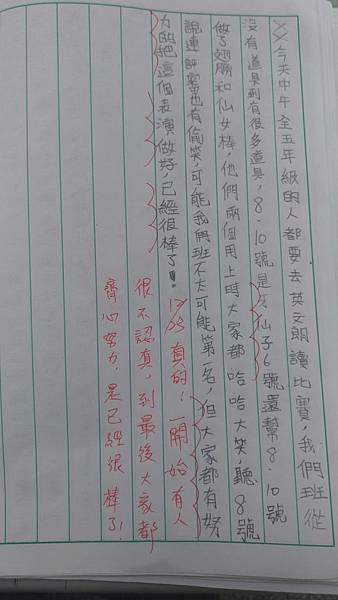 今天中午全五年級的人都要去英文朗讀比賽，我們班從
沒有道具到有很多道具，8.10號是牙仙子6號還幫8.10號
做了翅膀和仙女棒，他們兩個用上時大家都哈哈大笑，聽8號
說連評審也有偷笑，可能我們班不太可能第一名，但大家都有努
力的把這個表演做好，已經很棒了！
12/25真的！一開始有人
很不認真，到最後大家都
齊心努力，是已經很棒了！